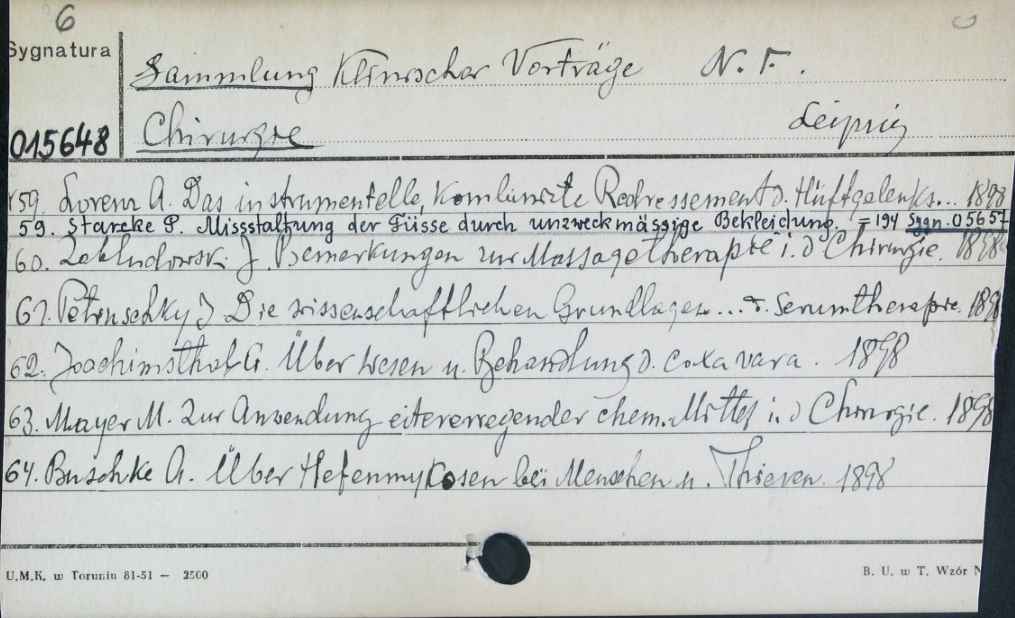 6
Sygnatura
Sammlung Klinischer Vorträge N. F.
015648 Chirurgie Leipzig
59. Lorenz A. Das instrumentelle, kombinirte Redressement d. Hüftgelenks... 1898
59. Starcke P. Missstaltung der Füsse durch unzweckmässige Bekleidung. = 194 Sygn. 05657
60. Zabludowski J. Bemerkungen zur Massagetherapie i. d Chirurgie. 1898
61. Petruschky J Die wissenschaftlichen Grundlagen... d. Serumtherapie. 1898
62. Joachimsthal G. Über Wesen u. Behandlung d. coxa vara. 1898
63. Mayer M. Zur Anwendung eitererregender chem. Mittel i. d Chirurgie. 1898
64. Buschke A. Über Hefenmykosen bei Menschen u. Thieren. 1898
U.M.K. w Toruniu 81-51 — 2500
B. U. w T. Wzór N